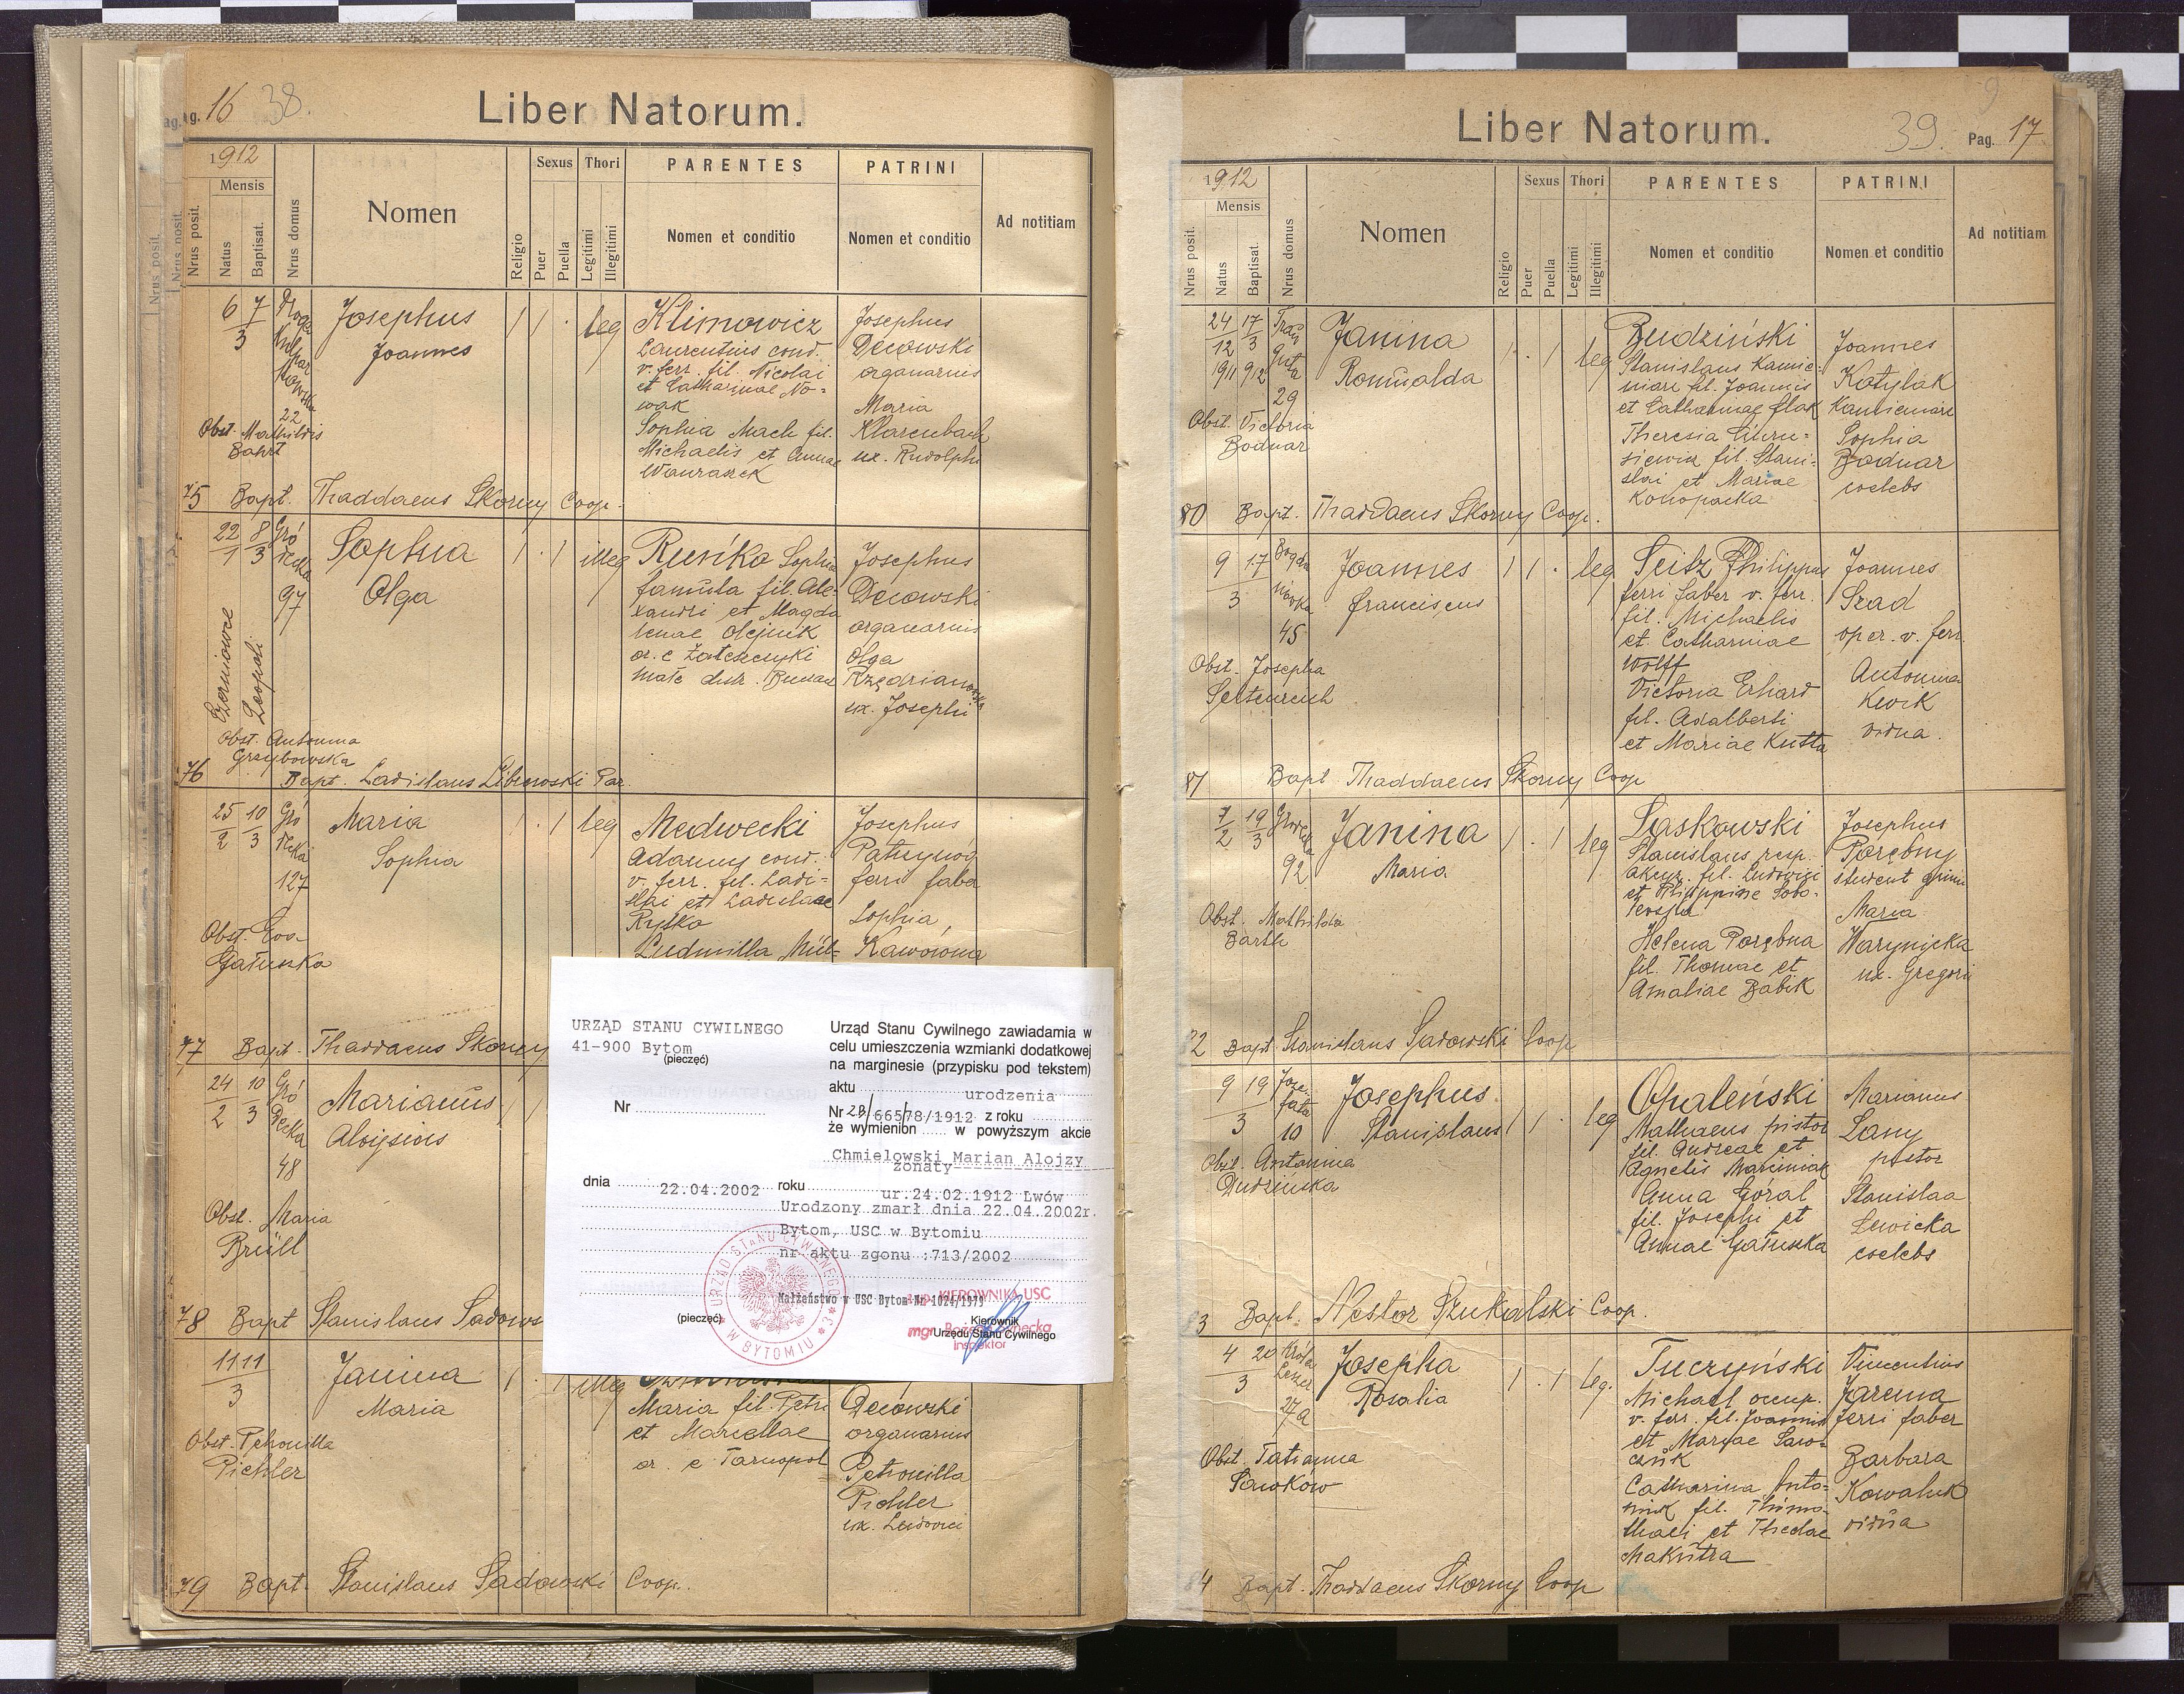 Pag. 16 38.
Liber Natorum.
1912
Mensis
Nrus posit.
Natus
Baptisat.
Nrus domus
Nomen
Religio
Sexus
Puer
Puella
Thori
Legitimi
Illegitimi
PARENTES
Nomen et conditio
PATRINI
Nomen et conditio
Ad notitiam
6 7
3
22
Josephus
Joannes
1 1 . leg
Klimowicz
Laurentius cond.
v. ferr. fil. Nicolai
et Catharinae No-
wak
Sophia Mach fil.
Michaelis et Annae
Josephus
Decowski
organarius
Maria
Klarenbach
ux. Rudolphi
Obst. Mathildis
Bahrt
75 Bapt. Thaddaeus Skorny Coop.
22 8
1 3
Gró
decka
97
Czerniowce
Leopoli
Sophia
Olga
1 . 1 illeg
Rusńko Sophia
famula fil. Ale-
xandri et Magda
lenae Olejnik
or. e Zaleszczyki
małe distr.
Josephus
Decowski
organarius
Olga
Rzędzianowska
ux. Josephi
Obst. Antonina
Grzybowska
76 Bapt. Ladislaus Librewski Par.
25 10
2 3
Gró
decka
127
Maria
Sophia
1 . 1 leg
Medwecki
Adamus cond.
v. ferr. fil. Ladi-
slai et Ladislaae
Rytko
Ludmilla Mül-
Josephus
Patrynóg
ferri faber
Sophia
Kawówna
Obst. Eva
Gałuszka
77 Bapt. Thaddaeus Skorny
24 10
2 3
Gró
decka
48
Marianus
Aloisius
1 1
Obst. Maria
Brüll
78 Bapt Stanislaus Sadows
11 11
3
Janina
Maria
1 . 1 illeg
Maria fil. Petri
et Marcellae
or. e Tarnopol
Decowski
organarius
Petronilla
Pichler
ux. Ludovici
Obst. Petronilla
Pichler
79 Bapt. Stanislaus Sadowski Coop.
URZĄD STANU CYWILNEGO
41-900 Bytom
(pieczęć)
Nr
Urząd Stanu Cywilnego zawiadamia w
celu umieszczenia wzmianki dodatkowej
na marginesie (przypisku pod tekstem)
aktu urodzenia
Nr 28/66578/1912 z roku
że wymienion w powyższym akcie
Chmielowski Marian Alojzy
żonaty
dnia 22.04.2002 roku ur.24.02.1912 Lwów
Urodzony zmarł dnia 22.04.2002r.
Bytom, USC w Bytomiu
nr aktu zgonu :713/2002
Małżeństwo w USC Bytom Nr 1024/1979
KIEROWNIKA USC
(pieczęć)
Kierownik
Urzędu Stanu Cywilnego
mgr
Inspektor
URZĄD STANU CYWILNEGO * W BYTOMIU * 3
Liber Natorum.
39. Pag. 17
1912
Mensis
Nrus posit.
Natus
Baptisat.
Nrus domus
Nomen
Religio
Sexus
Puer
Puella
Thori
Legitimi
Illegitimi
PARENTES
Nomen et conditio
PATRINI
Nomen et conditio
Ad notitiam
24 17
12 3
1911 912
29
Janina
Romualda
1 . 1 leg
Budziński
Stanislaus
fil. Joannis
et Catharinae Flak
Theresia
siewicz fil. Stani-
slai et Mariae
Konopacka
Joannes
Kotylak
Sophia
Bodnar
coelebs
Obst. Victoria
Bodnar
80 Bapt. Thaddaeus Skorny Coop.
9 17
3
Bogda
nówka
45
Joannes
Franciscus
1 1 . leg
Seitz Philippus
ferri faber v. ferr.
fil. Michaelis
et Catharinae
Wolff
Victoria Erhard
fil. Adalberti
et Mariae Kutta
Joannes
Szad
oper. v. ferr.
Antonina
Kwik
vidua.
Obst. Josepha
81 Bapt Thaddaeus Skorny Coop
7 19
2 3
Gródecka
92
Janina
Maria
1 . 1 leg
Laskowski
Stanislaus resp.
fil. Ludovici
et Philippine Sobo-
Helena Porębna
fil. Thomae et
Amaliae Babik
Josephus
Porębny
student
Maria
Warynicka
ux. Gregorii
Obst. Mathilda
Barth
82 Bapt Stanislaus Sadowski Coop
9 19
3
Joze
fata
10
Josephus
Stanislaus
1 1 . leg
Opaleński
Mathaeus pistor
fil. Andreae et
Agnetis Marciniak
Anna Góral
fil. Josephi et
Annae Gałuszka
Marianus
Lany
pistor
Stanislaa
Lewicka
coelebs
Obst. Antonina
Dudzińska
83 Bapt. Nestor Szukalski Coop.
4 20
3
Króla
Leszcz
27a
Josepha
Rosalia
1 . 1 leg.
Tuczyński
Michael occup.
v. ferr. fil. Joannis
et Mariae Saw-
czik
Catharina Anto-
niuk fil. Thimo-
thaei et Theclae
Makutra
Vincentius
Jarema
ferri faber
Barbara
Kowaluk
vidua
Obst. Tatianna
Sawoków
84 Bapt. Thaddaeus Skorny Coop